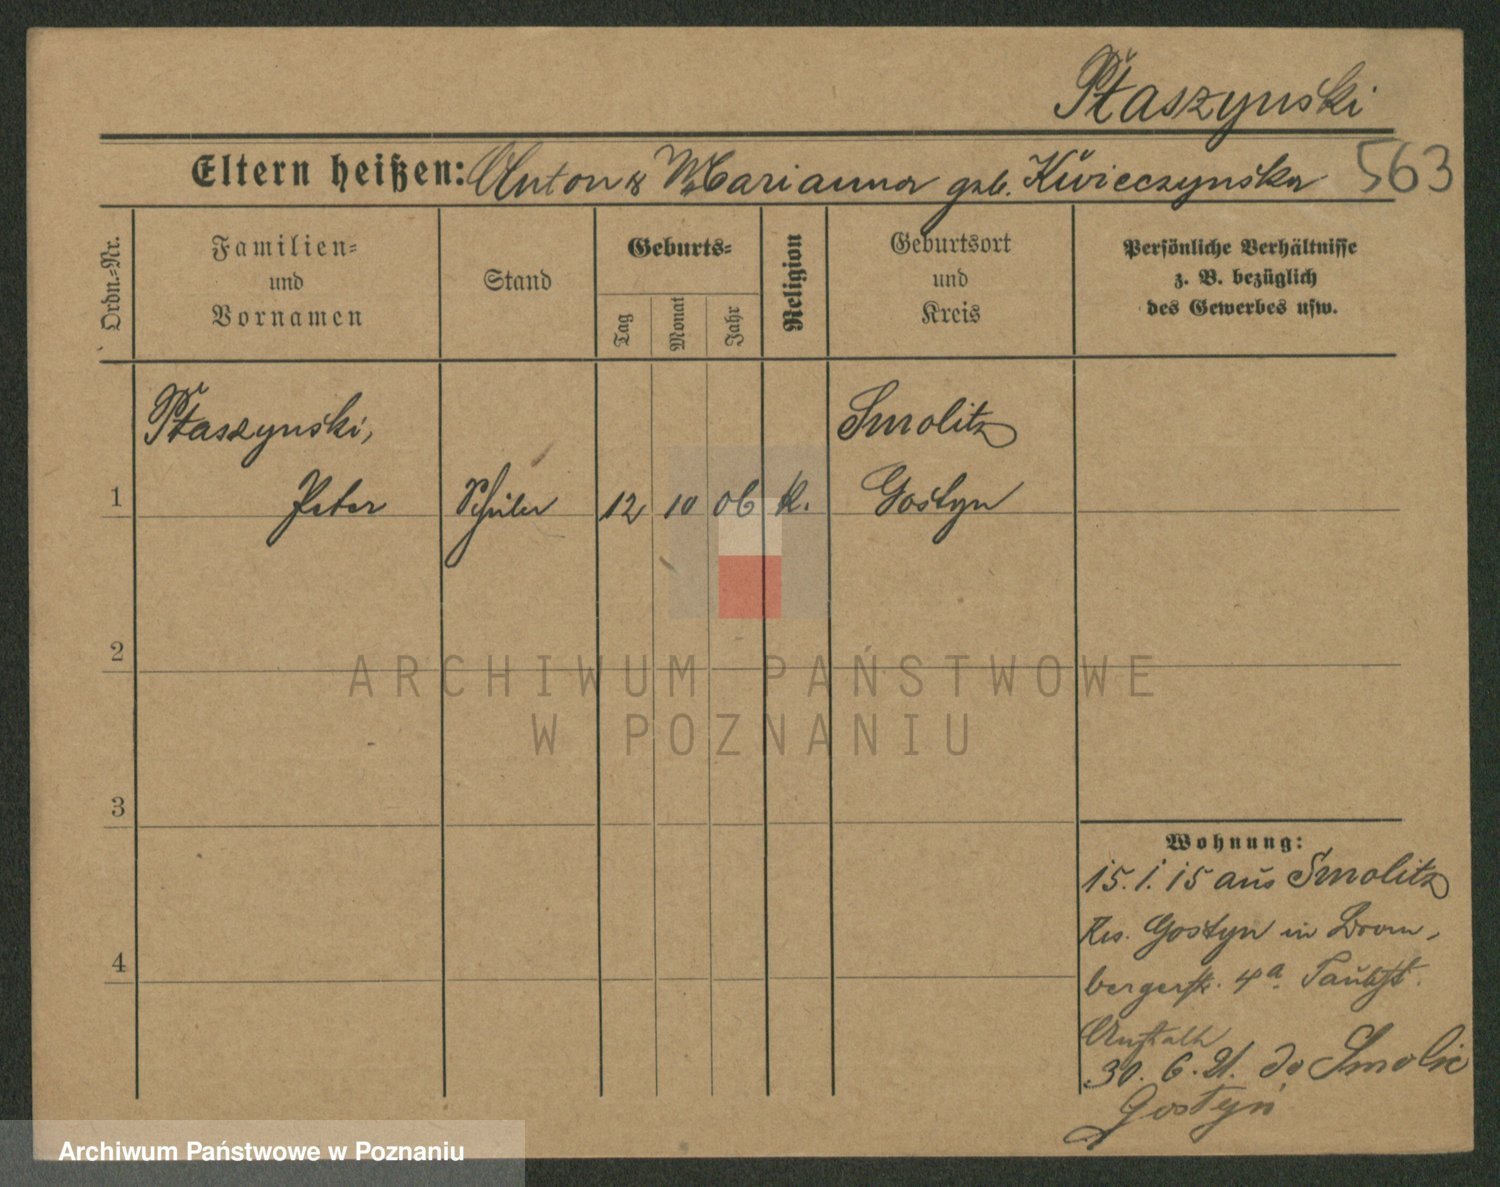 Ptaszynski
Eltern heißen: Anton & Marianna geb. Kwieczynska 563
Ordn.-Nr.
Familien-
und
Vornamen
Stand
Geburts-
Tag
Monat
Jahr
Religion
Geburtsort
und
Kreis
Persönliche Verhältnisse
z. B. bezüglich
des Gewerbes usw.
Ptaszynski, Smolitz
1 Peter Schüler 12 10 06 k. Gostyn
2
3
4
Wohnung:
15.1.15 aus Smolitz
Krs. Gostyn in Brom-
bergerstr. 4a Taubst.
Anstalt
30.6.21. do Smolic
Gostyń
ARCHIWUM PAŃSTWOWE
W POZNANIU
Archiwum Państwowe w Poznaniu